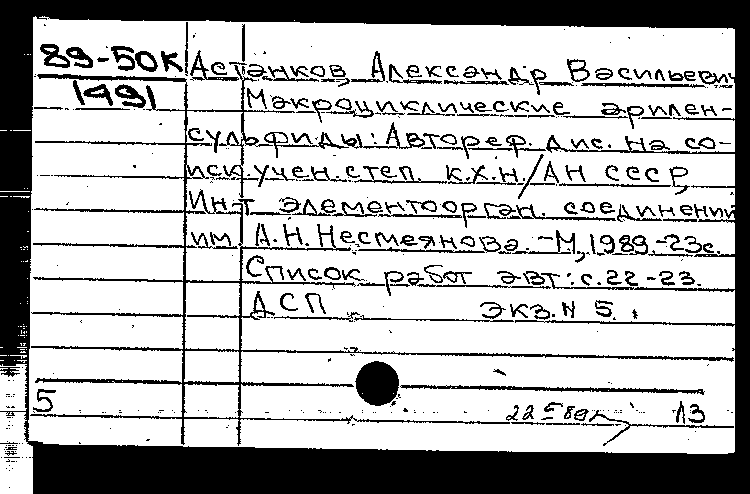 89-50К Астанков, Александр Васильевич
1491 Макроциклические арилен-
сульфиды: Автореф. дис. на со-
иск. учен. степ. к.х.н. / АН СССР,
Ин-т элементоорган. соединений
им. А.Н. Несмеянова. - М., 1989. - 23с.
Список работ авт.: с. 22-23.
ДСП экз. N 5.
5 13